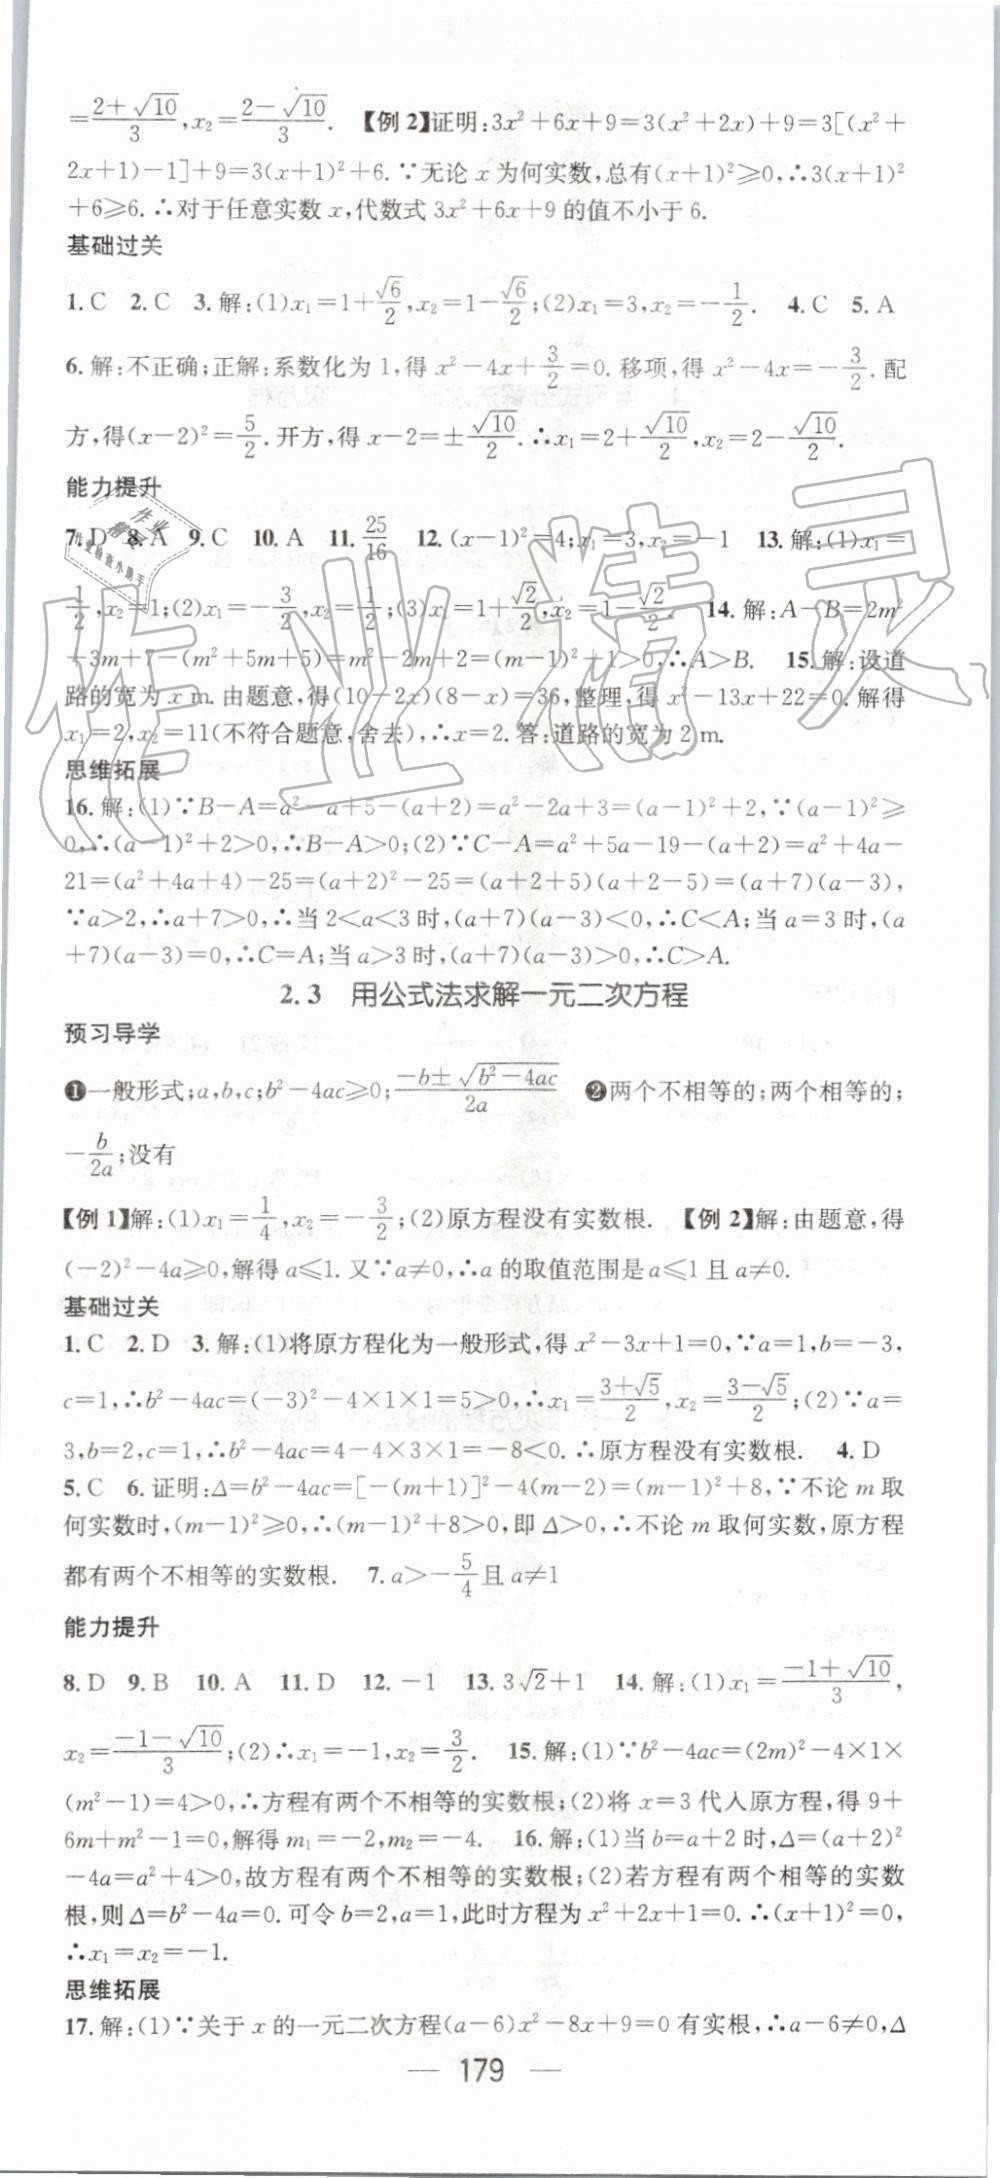 =(2+√10)/3,x₂=(2-√10)/3. 【例2】证明:3x²+6x+9=3(x²+2x)+9=3[(x²+
2x+1)-1]+9=3(x+1)²+6.∵无论 x 为何实数,总有(x+1)²≥0,∴3(x+1)²
+6≥6.∴对于任意实数 x,代数式 3x²+6x+9 的值不小于 6.
基础过关
1.C 2.C 3.解:(1)x₁=1+√6/2,x₂=1-√6/2;(2)x₁=3,x₂=-1/2. 4.C 5.A
6.解:不正确;正解:系数化为 1,得 x²-4x+3/2=0.移项,得 x²-4x=-3/2.配
方,得(x-2)²=5/2.开方,得 x-2=±√10/2.∴x₁=2+√10/2,x₂=2-√10/2.
能力提升
7.D 8.A 9.C 10.A 11.25/16 12.(x-1)²=4;x₁=3,x₂=-1 13.解:(1)x₁=
1/2,x₂=1;(2)x₁=-3/2,x₂=1/2;(3)x₁=1+√2/2,x₂=1-√2/2. 14.解:A-B=2m²
+3m+7-(m²+5m+5)=m²-2m+2=(m-1)²+1>0,∴A>B. 15.解:设道
路的宽为 x m.由题意,得(10-2x)(8-x)=36,整理,得 x²-13x+22=0.解得
x₁=2,x₂=11(不符合题意,舍去),∴x=2.答:道路的宽为 2 m.
思维拓展
16.解:(1)∵B-A=a²-a+5-(a+2)=a²-2a+3=(a-1)²+2,∵(a-1)²≥
0,∴(a-1)²+2>0,∴B-A>0;(2)∵C-A=a²+5a-19-(a+2)=a²+4a-
21=(a²+4a+4)-25=(a+2)²-25=(a+2+5)(a+2-5)=(a+7)(a-3),
∵a>2,∴a+7>0,∴当 2<a<3 时,(a+7)(a-3)<0,∴C<A;当 a=3 时,(a
+7)(a-3)=0,∴C=A;当 a>3 时,(a+7)(a-3)>0,∴C>A.
2.3 用公式法求解一元二次方程
预习导学
❶一般形式;a,b,c;b²-4ac≥0;(-b±√(b²-4ac))/2a ❷两个不相等的;两个相等的;
-b/2a;没有
【例1】解:(1)x₁=1/4,x₂=-3/2;(2)原方程没有实数根. 【例2】解:由题意,得
(-2)²-4a≥0,解得 a≤1.又∵a≠0,∴a 的取值范围是 a≤1 且 a≠0.
基础过关
1.C 2.D 3.解:(1)将原方程化为一般形式,得 x²-3x+1=0,∵a=1,b=-3,
c=1,∴b²-4ac=(-3)²-4×1×1=5>0,∴x₁=(3+√5)/2,x₂=(3-√5)/2;(2)∵a=
3,b=2,c=1,∴b²-4ac=4-4×3×1=-8<0.∴原方程没有实数根. 4.D
5.C 6.证明:Δ=b²-4ac=[-(m+1)]²-4(m-2)=(m-1)²+8,∵不论 m 取
何实数时,(m-1)²≥0,∴(m-1)²+8>0,即 Δ>0,∴不论 m 取何实数,原方程
都有两个不相等的实数根. 7.a>-5/4且 a≠1
能力提升
8.D 9.B 10.A 11.D 12.-1 13.3√2+1 14.解:(1)x₁=(-1+√10)/3,
x₂=(-1-√10)/3;(2)∴x₁=-1,x₂=3/2. 15.解:(1)∵b²-4ac=(2m)²-4×1×
(m²-1)=4>0,∴方程有两个不相等的实数根;(2)将 x=3 代入原方程,得 9+
6m+m²-1=0,解得 m₁=-2,m₂=-4. 16.解:(1)当 b=a+2 时,Δ=(a+2)²
-4a=a²+4>0,故方程有两个不相等的实数根;(2)若方程有两个相等的实数
根,则 Δ=b²-4a=0.可令 b=2,a=1,此时方程为 x²+2x+1=0.∴(x+1)²=0,
∴x₁=x₂=-1.
思维拓展
17.解:(1)∵关于 x 的一元二次方程(a-6)x²-8x+9=0 有实根,∴a-6≠0,Δ
— 179 —
作业精灵